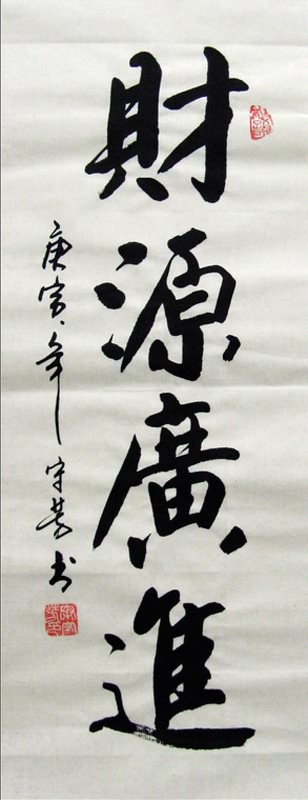 財源廣進
庚寅年守芸书